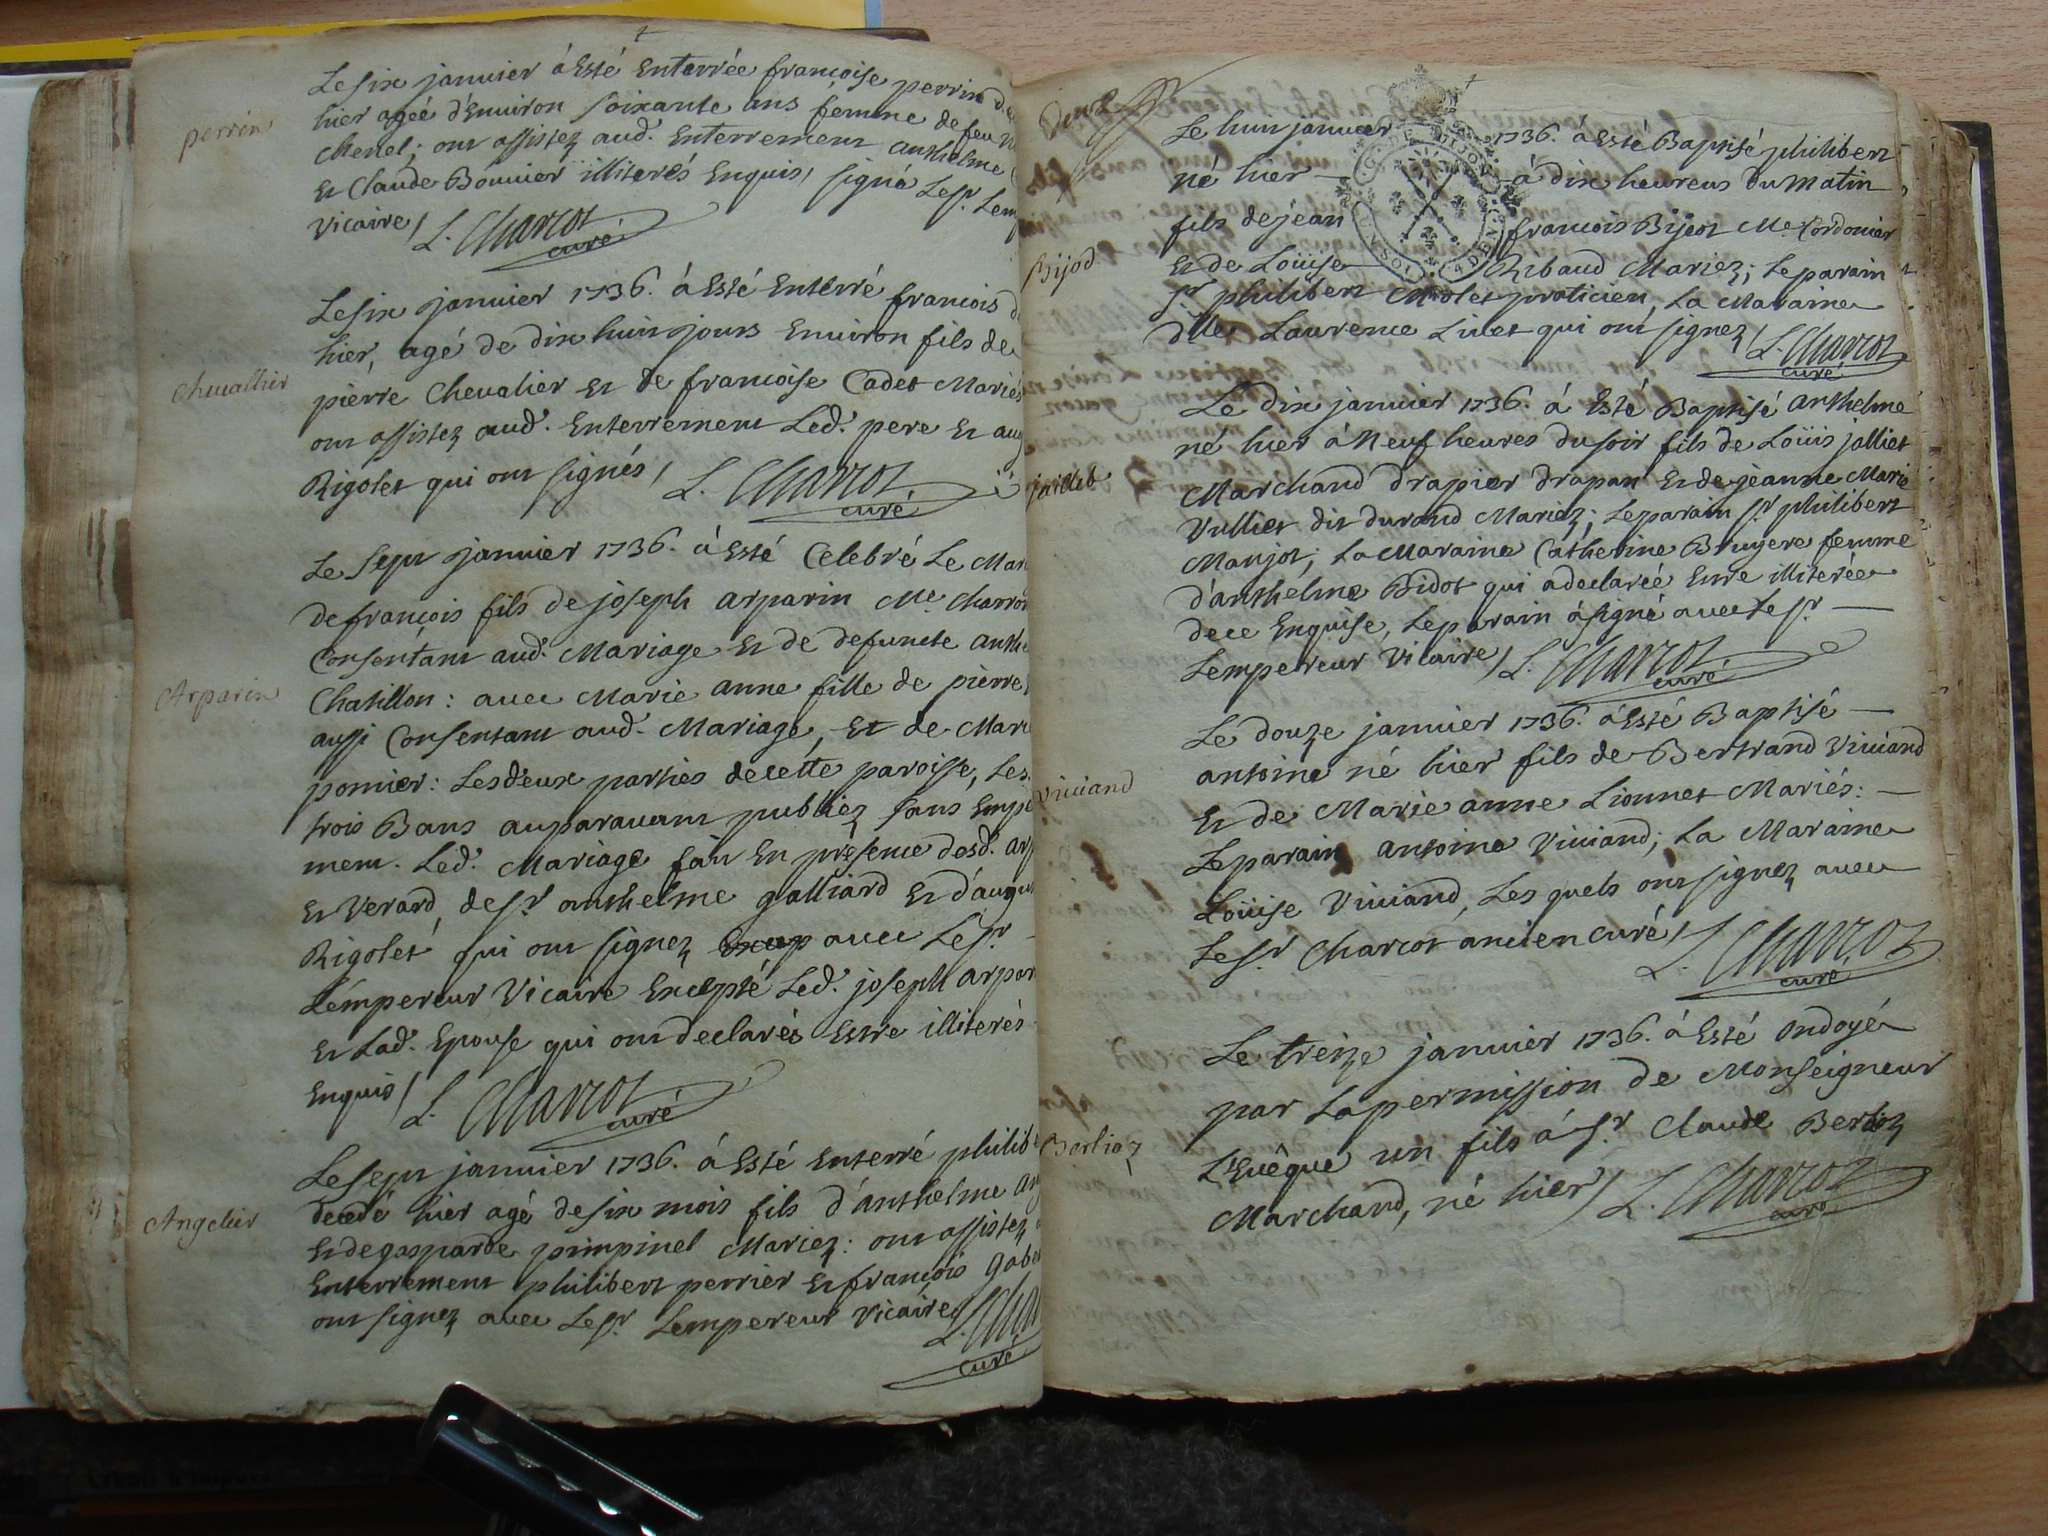 Le six janvier à Esté Enterrée francoise perrin
perrin
hier agée d'Environ soixante ans femme de feu
chenel; ont assistez aud. Enterrement anthelme
Et Claude Bouvier illiterés Enquis, signé Le sr. Lem
Vicaire / L. Charcot
curé
Le six janvier 1736. à Esté Enterré francois
hier, agé de dix huit jours Environ fils de
Chevallier
pierre Chevalier Et de francoise Cadet Mariés
ont assistez aud. Enterrement Led. pere Et aug
Rigolet qui ont signés / L. Charcot
curé
Le sept janvier 1736. à Esté Celebré Le Mar
de françois fils de joseph arparin Me. Charron
Consentant aud. Mariage Et de defuncte anthe
Arparin
Chatillon: avec Marie anne fille de pierre
aussi Consentant aud. Mariage, Et de Mar
ponnier: Les deux parties de cette paroisse, Les
trois Bans auparavant publiez sans Empe
ment. Led. Mariage fait En presence desd. arp
Et Verard, de sr. anthelme galliard Et d'augu
Rigolet qui ont signez avec Le sr.
Lempereur Vicaire Excepté Led. joseph arpar
Et Lad. Epouse qui ont declarés Estre illiterés
Enquis / L. Charcot
curé
Le sept janvier 1736. à Esté Enterré philib
Angelier
decedé hier agé de six mois fils d'anthelme an
Et de gasparde pimpinel Mariez: ont assistez
Enterrement philibert perrier Et françois gabe
ont signez avec Le sr. Lempereur Vicaire / L. Char
curé
Deux
Le huit janvier 1736. à Esté Baptisé philibert
né hier à dix heures du matin
fils de jean francois Bijeot Me. Cordonier
Bijod
Et de Loüise Ribaud Mariez; Le parain
sr. philibert Molet praticien, La Maraine
dlle. Laurence Livet qui ont signez / L. Charcot
curé
Le dix janvier 1736. à Esté Baptisé anthelme
né hier à neuf heures du soir fils de Loüis jolliet
Marchand drapier drapan Et de jeanne Marie
Vulliet dit durand Mariez; Le parain sr. philibert
Maujot; La Maraine Catherine Bruyere femme
d'anthelme Bidot qui a declarée Entre illiterée
de ce Enquise, Le parain à signé avec Le sr.
Lempereur Vicaire / L. Charcot
curé
Le douze janvier 1736. à Esté Baptisé
Viviand
antoine né hier fils de Bertrand Viviand
Et de Marie anne Lionnet Mariés:
Le parain antoine Viviand; La Maraine
Loüise Viviand, Les quels ont signez avec
Le sr. Charcot ancien curé / L. Charcot
curé
Le treize janvier 1736. à Esté ondoyé
par La permission de Monseigneur
Berlioz
L'Evêque un fils à sr. Claude Berlioz
Marchand, né hier / L. Charcot
curé